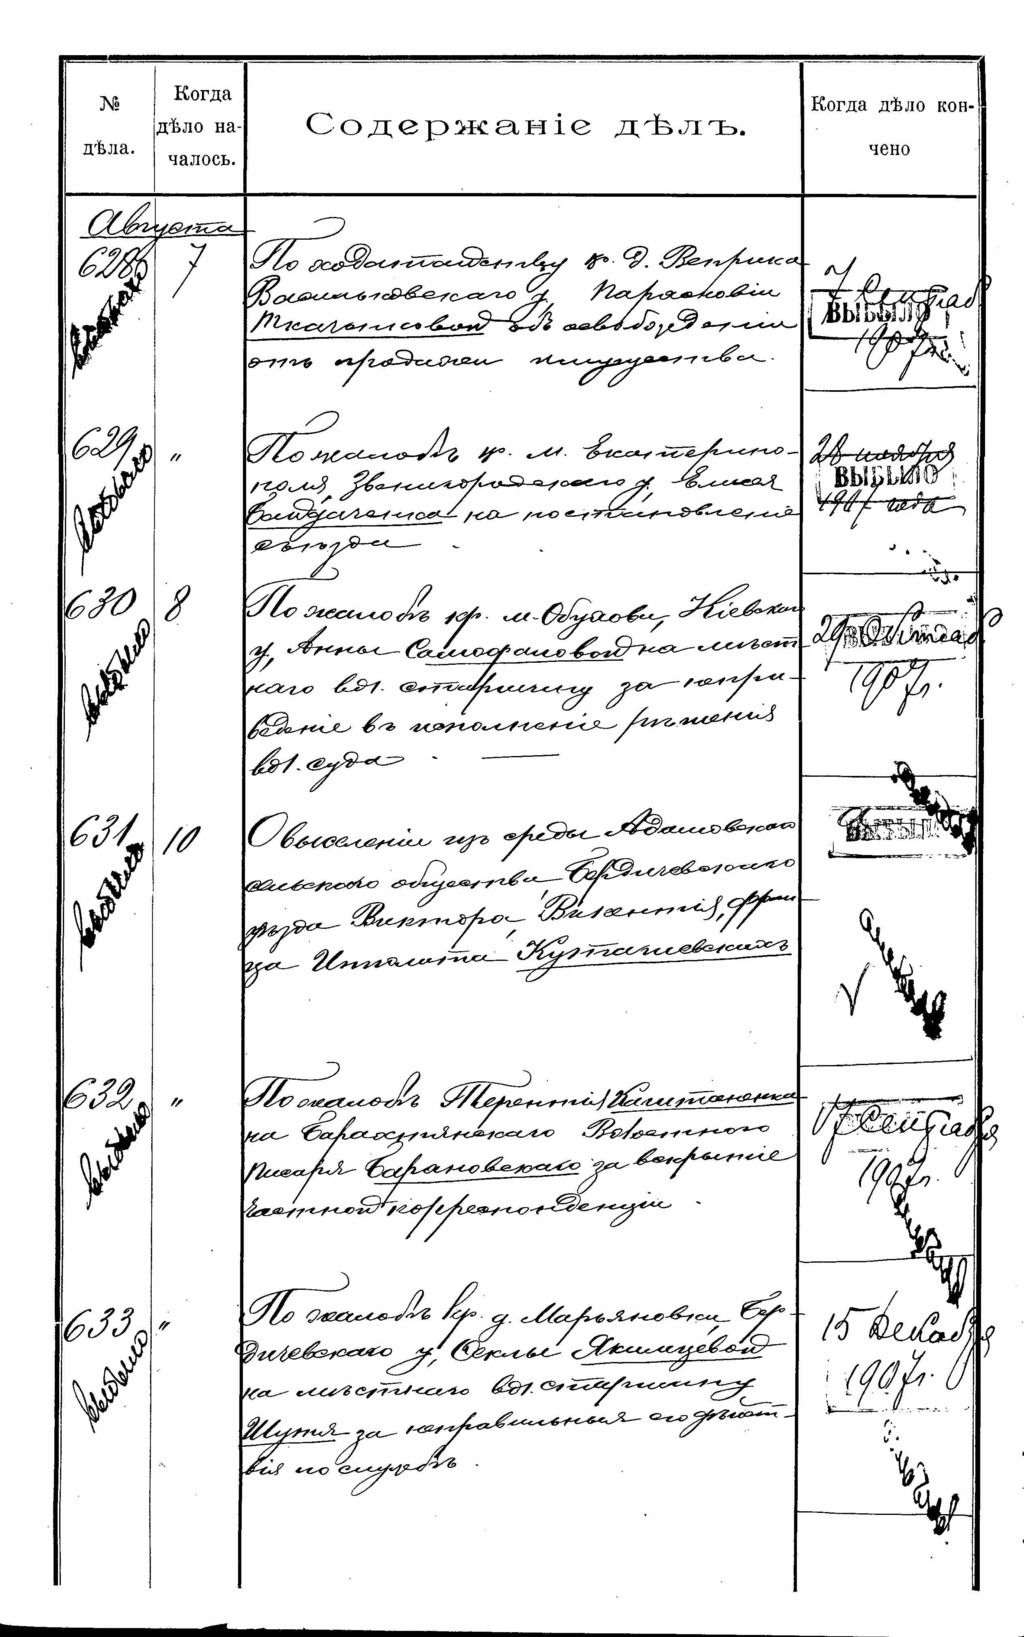 № дѣла.
Когда дѣло на-
чалось.
Содержаніе дѣлъ.
Когда дѣло кон-
чено
Августа
628 7
По ходатайству кр. д. Веприка
Васильковскаго у, Парасковіи
Ткаченковой объ освобожденіи
отъ продажи имущества.
7 Сентяб
ВЫБЫЛО
1907г.
выбыло
629 "
По жалобѣ кр. м. Екатерино-
поля, Звенигородскаго у, Елисея
Байдаченка на постановленіе
съѣзда
28 ноября
ВЫБЫЛО
1907 года
выбыло
630 8
По жалобѣ кр. м. Обухова, Кіевскаго
у, Анны Самофаловой на мѣст
наго вол. старшину за непри-
веденіе въ исполненіе рѣшенія
вол. суда
29
1907г.
выбыло
631 10
О выселеніи изъ среды Адамовскаго
сельского общества, Бердичевскаго
уѣзда Виктора, Викентія, Фран
ца Ипполита
выбыло
632 "
По жалобѣ Терентія
на Барахтянскаго Волостного
писаря Барановскаго за вскрытіе
частной корреспонденціи
17 Сентября
1907г.
выбыло
633 "
По жалобѣ кр. д. Марьяновки, Бер-
дичевскаго у, Феклы Якимцевой
на мѣстнаго вол. старшину
за неправильныя его дѣйст-
вія по службѣ.
15 Декабря
1907г.
выбыло